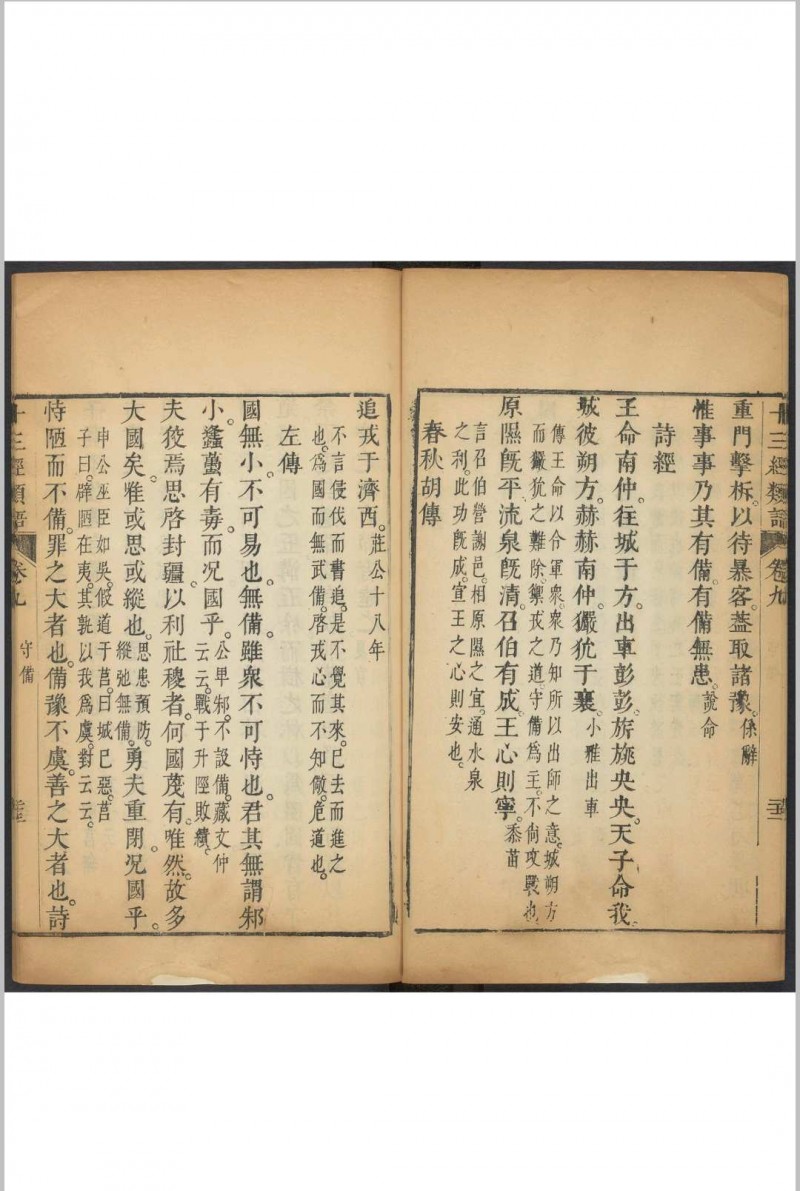 十三經類語 卷九
重門擊柝。以待暴客。葢取諸豫。係辭
惟事事乃其有備。有備無患。說命
詩經
王命南仲。往城于方。出車彭彭。旂旐央央。天子命我。
城彼朔方。赫赫南仲。玁狁于襄。小雅出車
傳王命以令軍衆。衆乃知所以出師之意。城朔方
而玁狁之難除。禦戎之道。守備爲主。不尙攻戰也。
原隰旣平。流泉旣清。召伯有成。王心則寧。黍苗
言召伯營謝邑。相原隰之宜。通水泉
之利。此功旣成。宣王之心則安也。
春秋胡傳
追戎于濟西。莊公十八年
不言侵伐而書追。是不覺其來。已去而進之
也。爲國而無武備。啓戎心而不知儆。危道也。
左傳
國無小。不可易也。無備。雖衆不可恃也。君其無謂邾
小。蠭蠆有毒。而况國乎。公卑邾。不設備。臧文仲
云云。戰于升陘敗績。
夫狡焉思啓封疆。以利社稷者。何國蔑有。唯然。故多
大國矣。唯或思或縱也。思患預防。
縱弛無備。勇夫重閉。况國乎。
申公巫臣如吳。假道于莒。曰城已惡。莒
子曰。辟陋在夷。其孰以我爲虞。對云云。
恃陋而不備。罪之大者也。備豫不虞。善之大者也。詩
十三經類語 卷九 守備